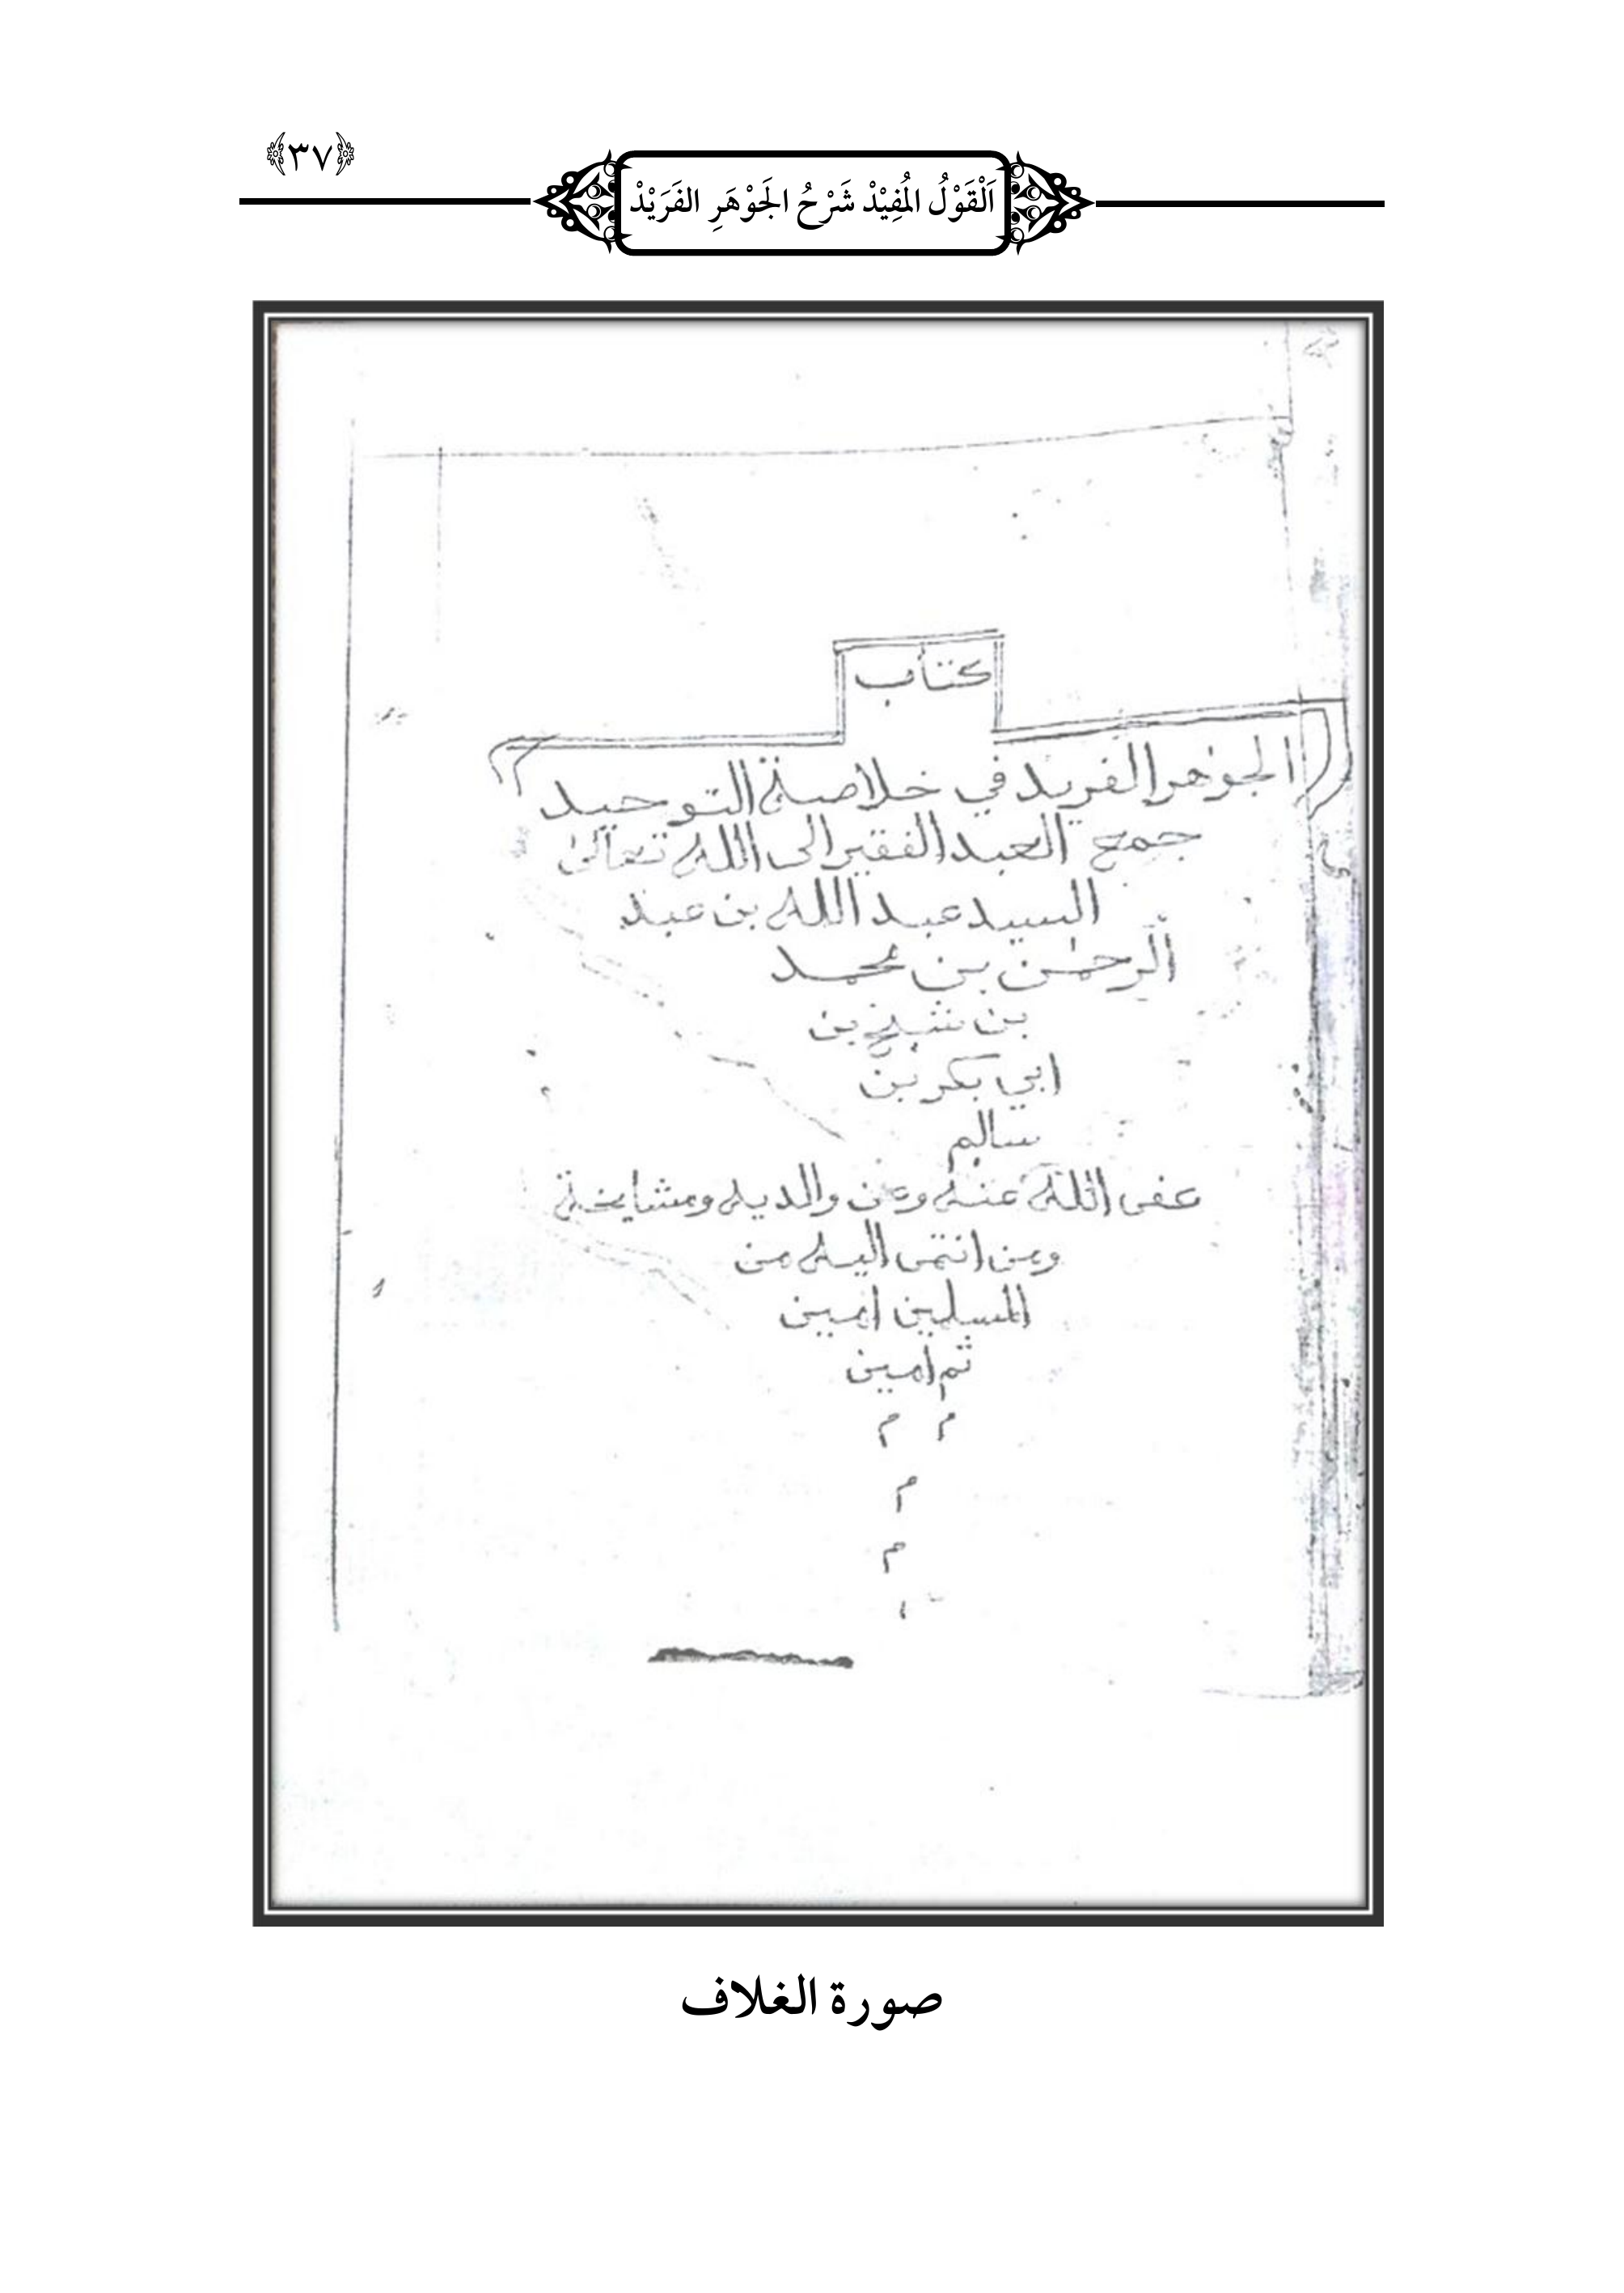 ﴿٣٧﴾
اَلْقَوْلُ المُفِيْدْ شَرْحُ الجَوْهَرِ الفَرَيْدْ
كتاب
الجوهر الفريد في خلاصة التوحيد
جمع العبد الفقير الى الله تعالى
السيد عبد الله بن عبد
الرحمن بن محمد
بن شيخ بن
ابي بكر بن
سالم
عفى الله عنه وعن والديه ومشايخه
ومن انتمى اليه من
المسلمين امين
ثم امين
م م
م
م
صورة الغلاف